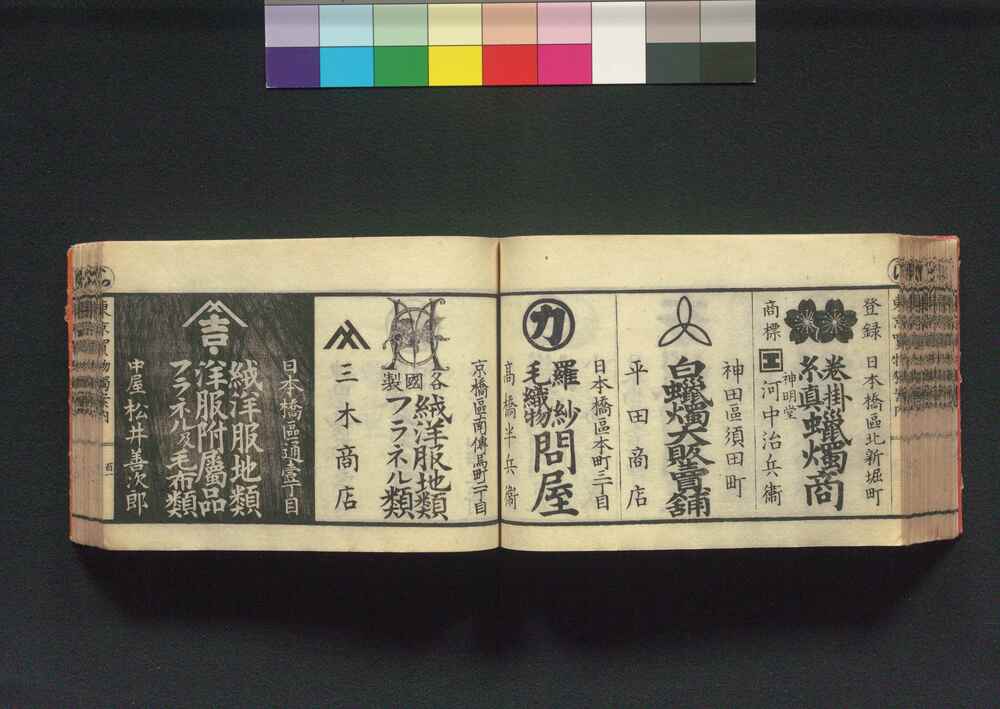 登録
商標
日本橋區北新堀町
卷掛蠟燭商
糸真
神明堂
河中治兵衞
神田區須田町
白蠟燭大販賣舗
平田商店
日本橋區本町二丁目
力
羅紗
毛織物
問屋
高橋半兵衞
京橋區南傳馬町二丁目
各國製
絨洋服地類
フラネル類
三木商店
日本橋區通壹丁目
吉
絨洋服地類
洋服附屬品
フラネル及毛布類
中屋 松井善次郎